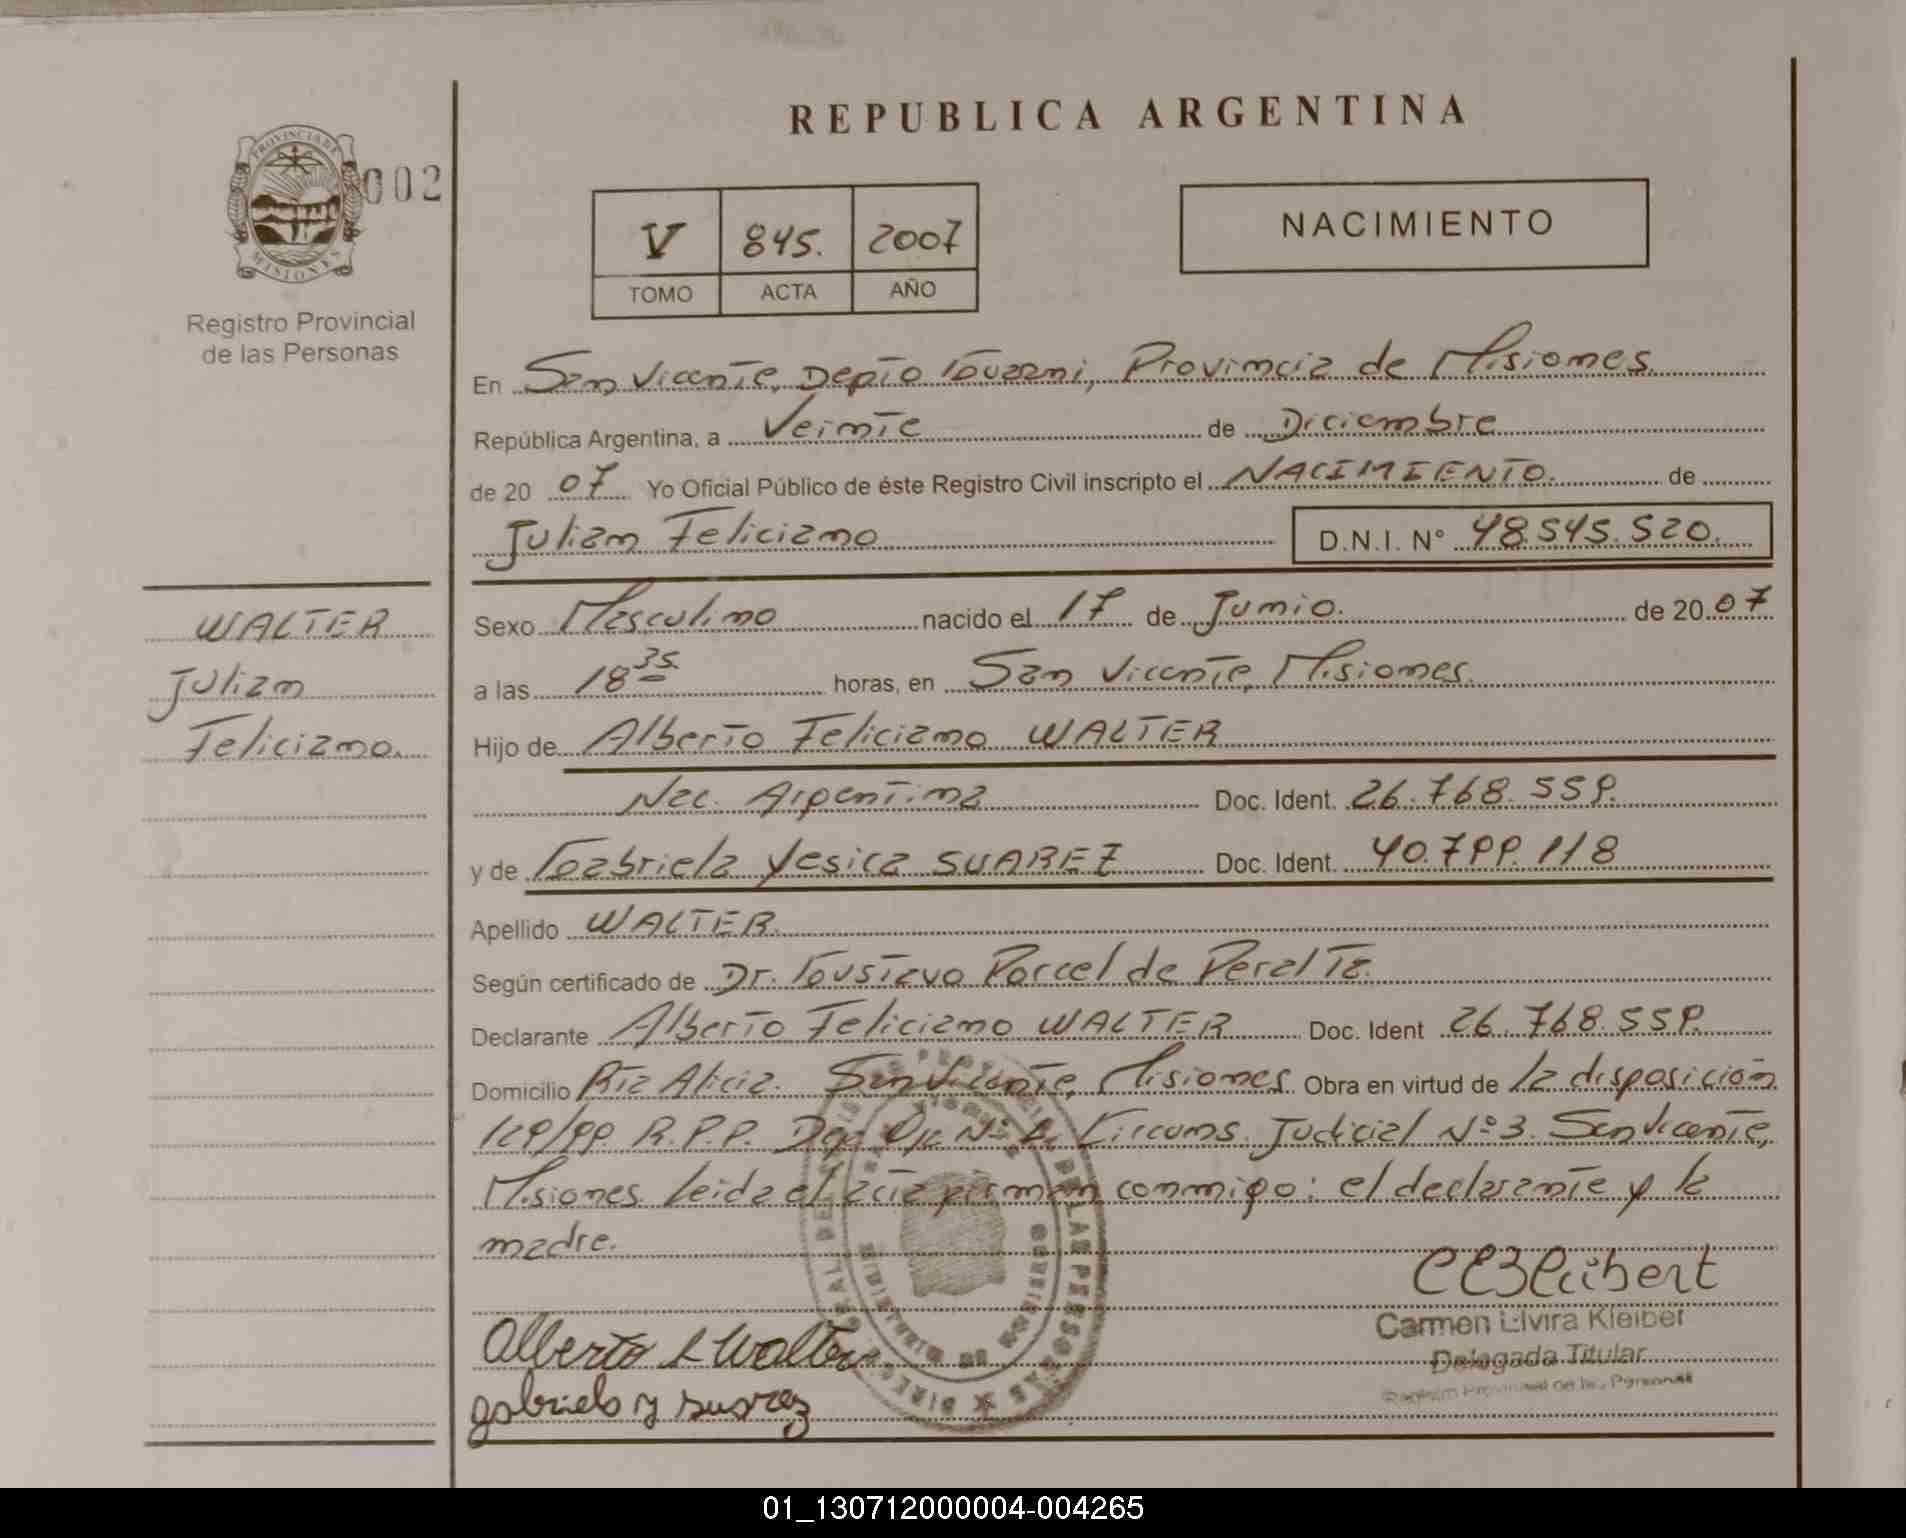 REPUBLICA ARGENTINA
PROVINCIA DE
MISIONES
002
Registro Provincial
de las Personas
V 845. 2007
TOMO ACTA AÑO
NACIMIENTO
En San Vicente, Depto Guarani, Provincia de Misiones
República Argentina, a Veinte de Diciembre
de 20 07 Yo Oficial Público de éste Registro Civil inscripto el NACIMIENTO. de
Julian Feliciano D.N.I. N° 48.545.520.
WALTER
Julian
Feliciano.
Sexo Masculino nacido el 17 de Junio. de 20 07
a las 18 35 horas, en San Vicente, Misiones.
Hijo de Alberto Feliciano WALTER
Nac. Argentina Doc. Ident. 26.768.559.
y de Gabriela Yesica SUAREZ Doc. Ident. 40.799.118
Apellido WALTER.
Según certificado de Dr. Gustavo Porcel de Peralta.
Declarante Alberto Feliciano WALTER Doc. Ident 26.768.559.
Domicilio Pta Alicia. San Vicente, Misiones. Obra en virtud de la disposición
129/99. R.P.P. Circuns. Judicial N°3. San Vicente,
Misiones. Leida el acta firman conmigo: el declarante y la
madre.
Alberto F Walter
gabriela y suarez
Carmen Elvira Kleiber
Delegada Titular
Registro Provincial de las Personas
01_130712000004-004265